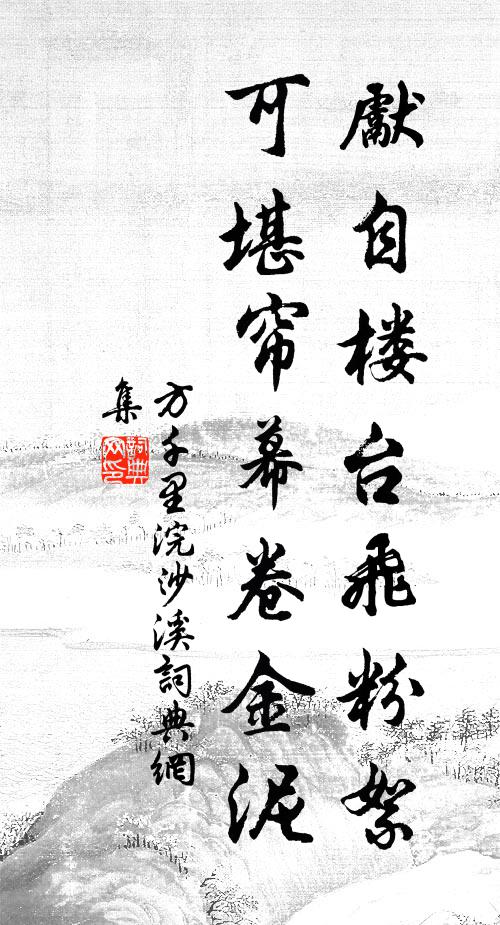 獻自楼台飛粉絮
可堪帘幕卷金泥
方千里浣沙溪詞典網
集
詞典
网印